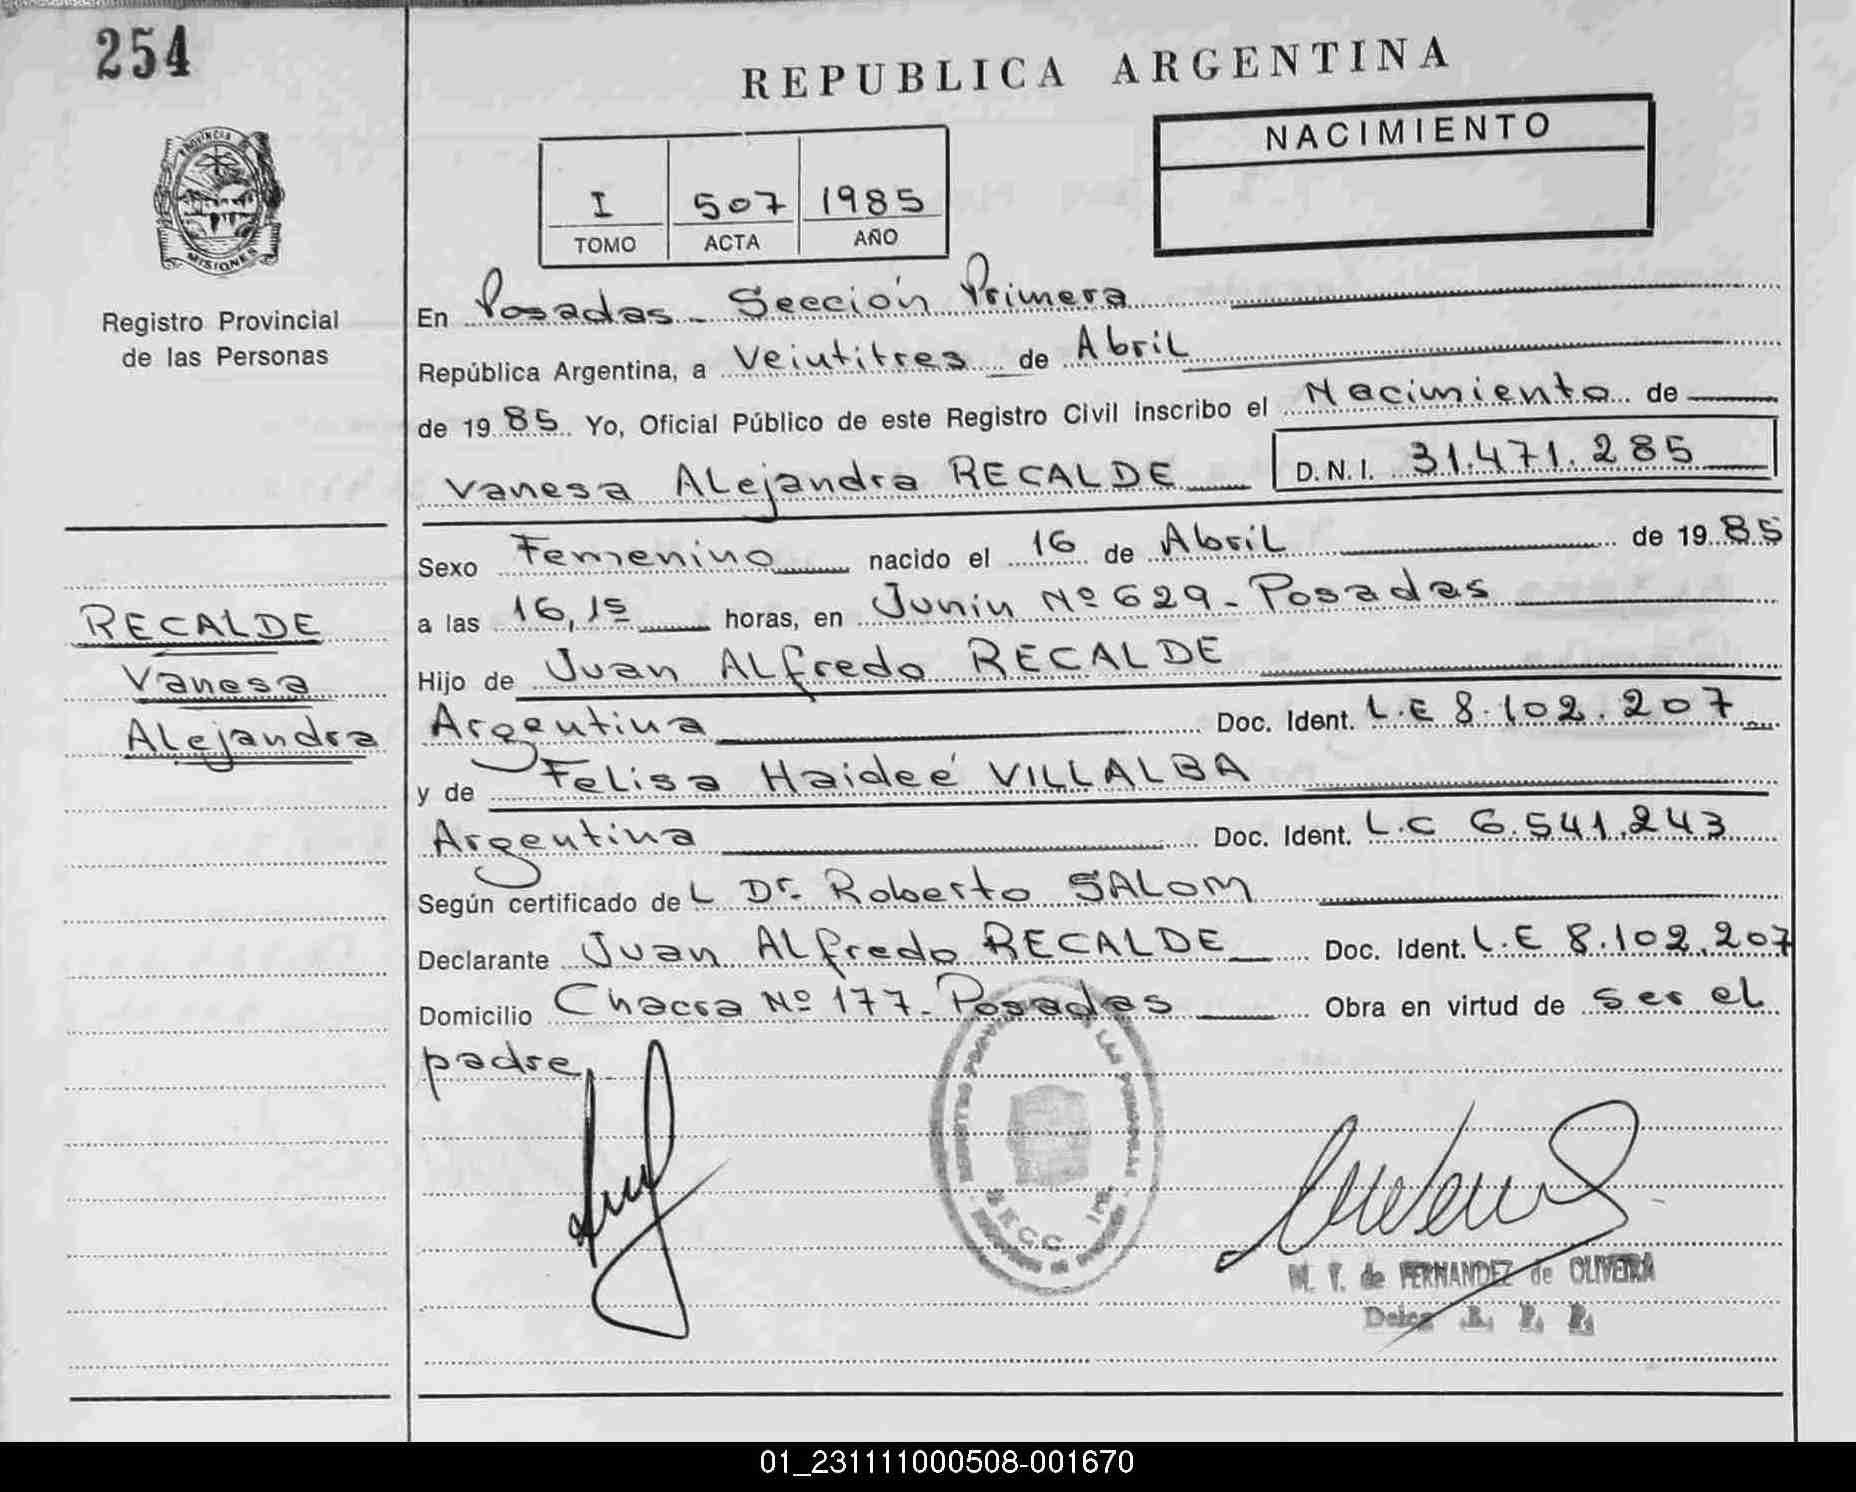 254
REPUBLICA ARGENTINA
NACIMIENTO
I 507 1985
TOMO ACTA AÑO
PROVINCIA
MISIONES
Registro Provincial
de las Personas
En Posadas - Sección Primera
República Argentina, a Veintitres de Abril
de 1985 Yo, Oficial Público de este Registro Civil inscribo el Nacimiento de
Vanesa Alejandra RECALDE D.N.I. 31.471.285
Sexo Femenino nacido el 16 de Abril de 1985
a las 16,15 horas, en Junin Nº 629 - Posadas
Hijo de Juan Alfredo RECALDE
Argentina Doc. Ident. L.E 8.102.207
y de Felisa Haideé VILLALBA
Argentina Doc. Ident. L.C 6.541.243
Según certificado del Dr. Roberto SALOM
Declarante Juan Alfredo RECALDE Doc. Ident. L.E 8.102.207
Domicilio Chacra Nº 177 - Posadas Obra en virtud de ser el
padre
RECALDE
Vanesa
Alejandra
SECC. 1ra.
M. Y. de FERNANDEZ de OLIVEIRA
Deleg. R. P. P.
01_231111000508-001670